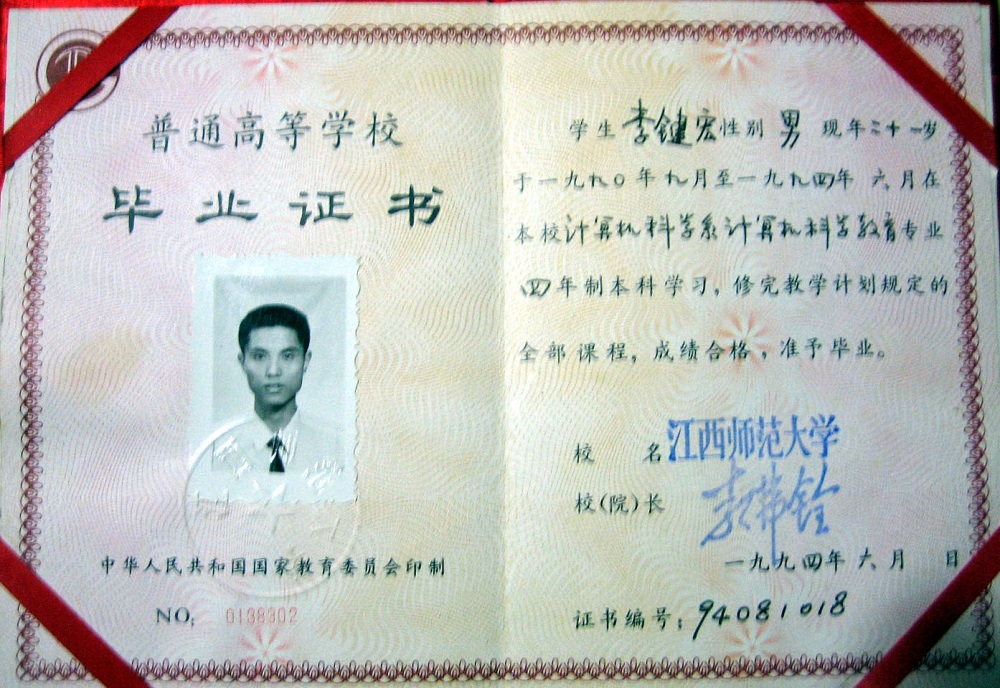 普通高等学校
毕业证书
中华人民共和国国家教育委员会印制
NO: 0138302
学生 李键宏 性别 男 现年二十一岁
于一九九〇年九月至一九九四年 六月在
本校计算机科学系计算机科学教育专业
四年制本科学习，修完教学计划规定的
全部课程，成绩合格，准予毕业。
校 名 江西师范大学
校(院)长
一九九四年 六月 日
证书编号：94081018